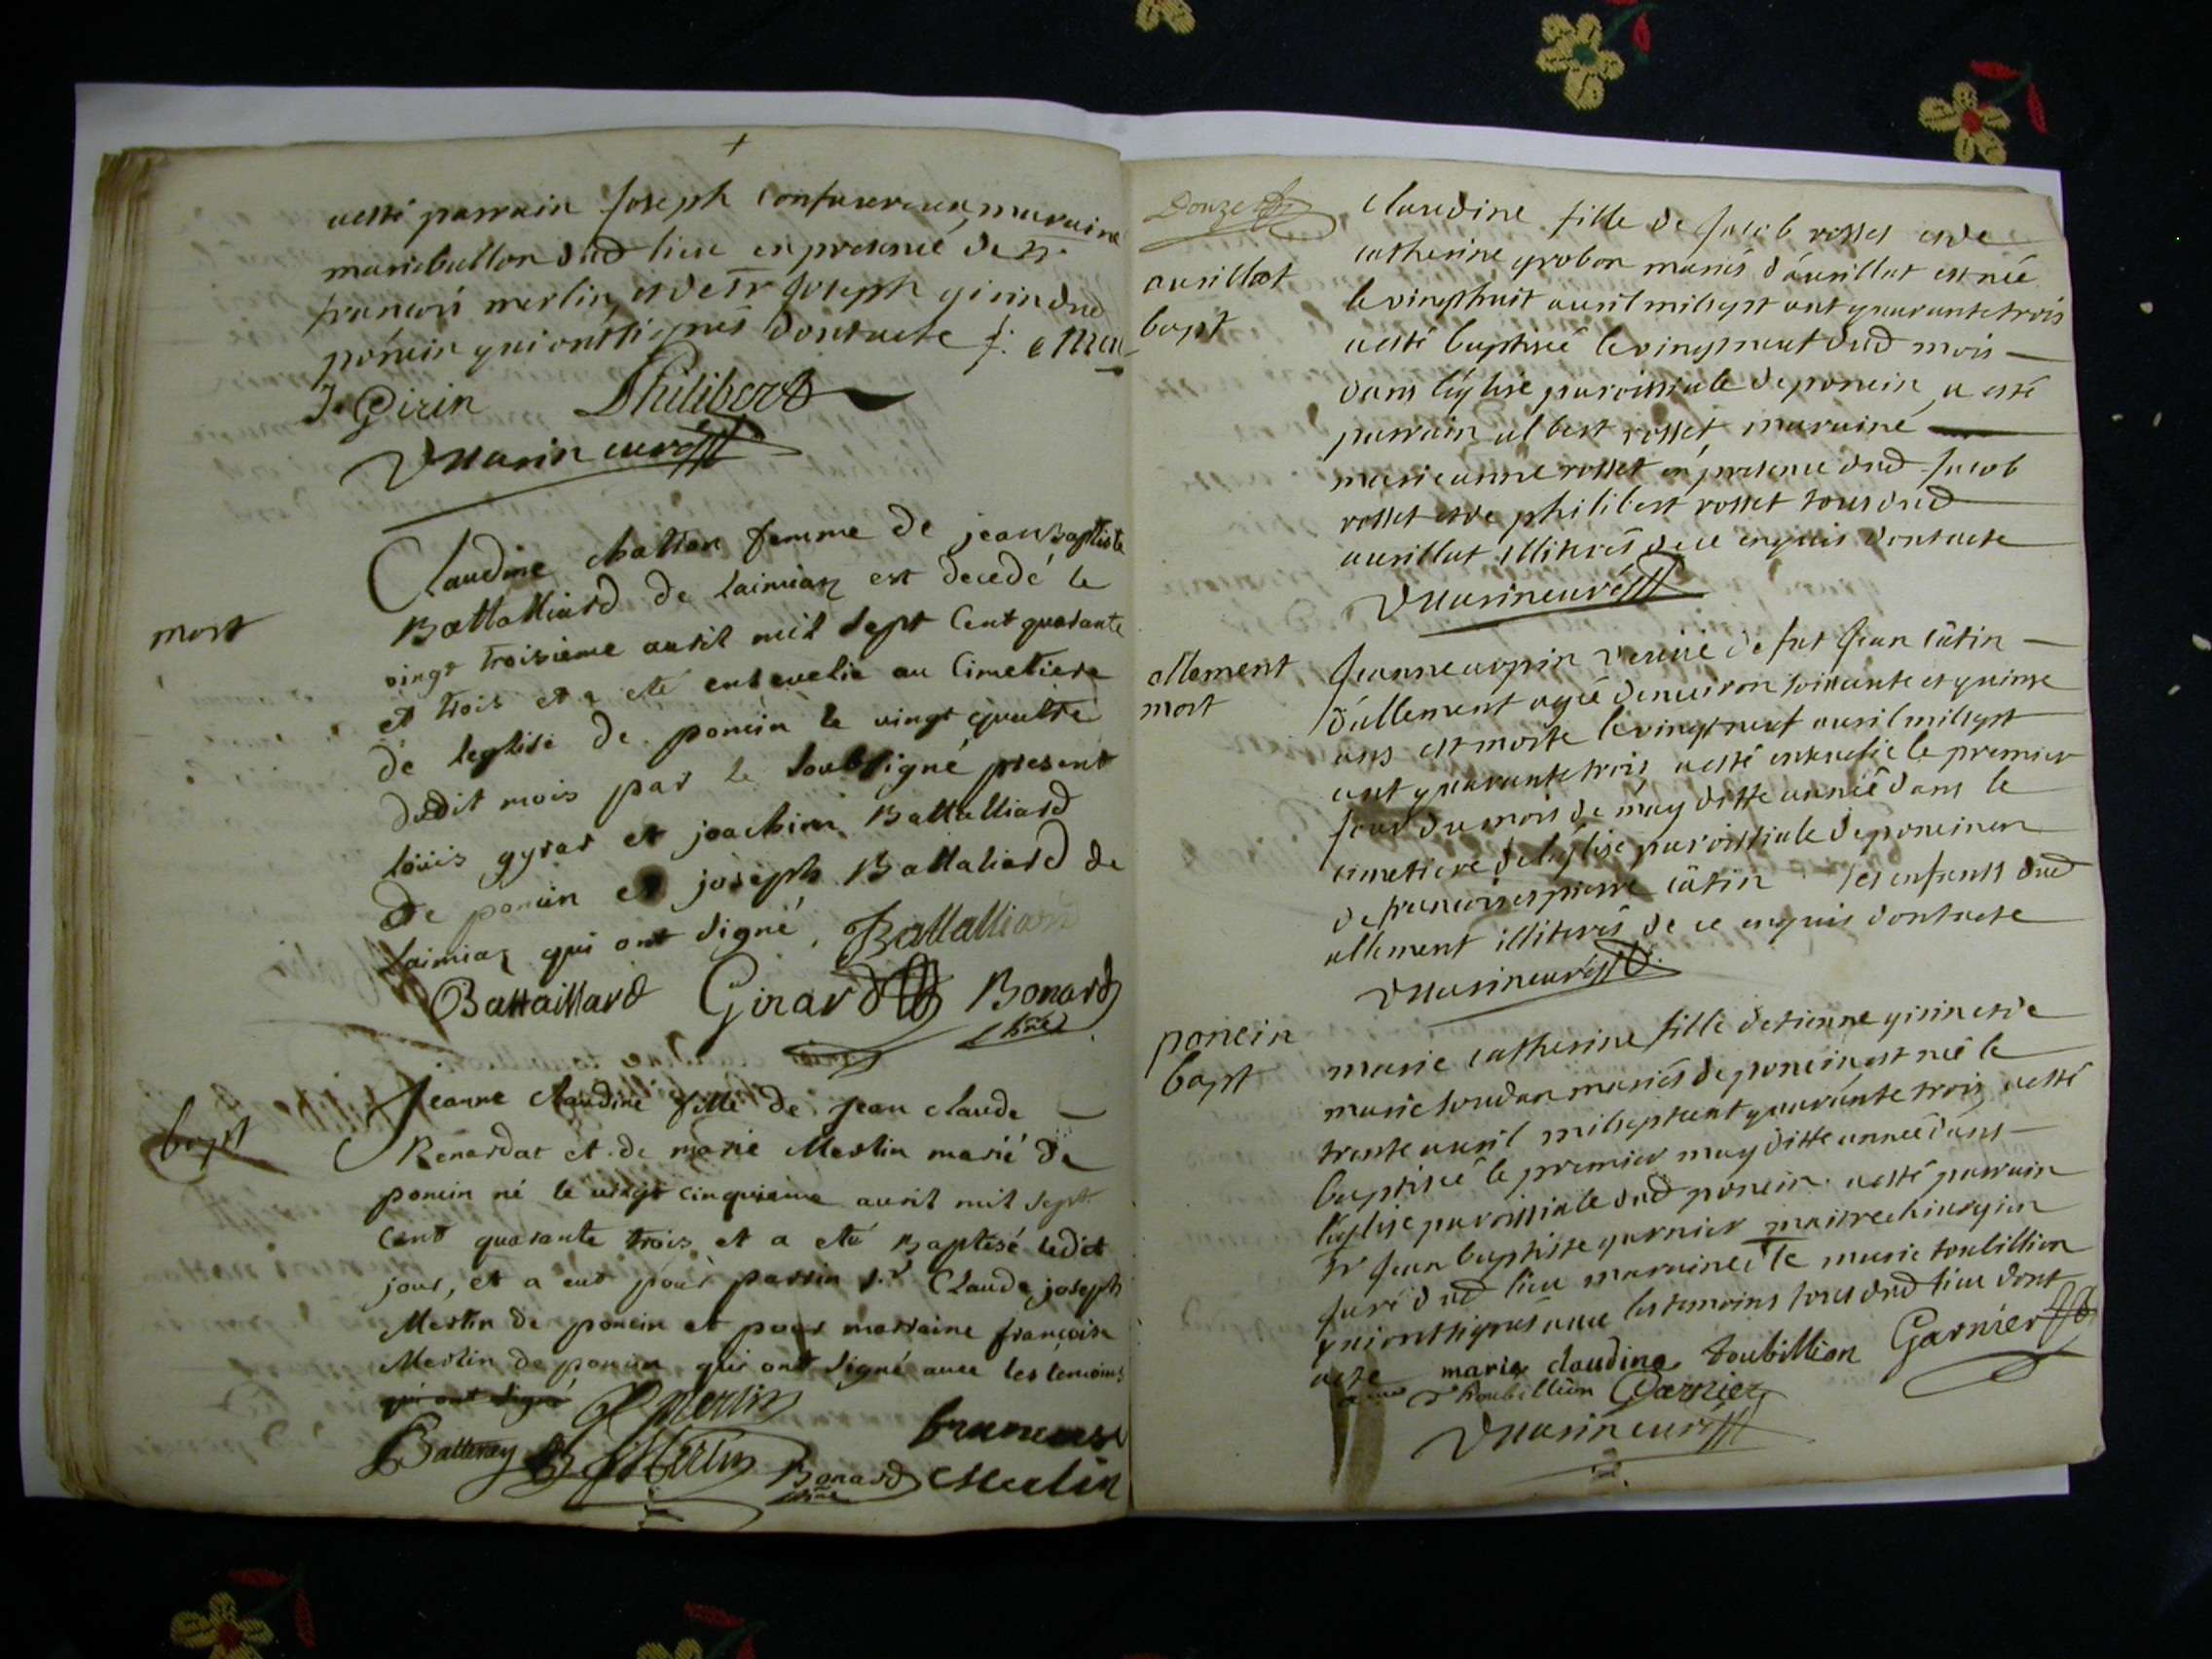 +
a esté parrain Joseph maraine
marie ballon dud lieu en presence de Sr
francois merlin, et de Sr Joseph girin dud
poncin qui ont signés dont acte
J. Girin Philibert
curé
Claudine chatton femme de jean Baptiste
Battalliard de laimiaz est decedé le
vingt troisieme auril mil sept Cent quarante
et trois et a eté ensevelie au Cimetiere
de leglise de poncin le vingt quatre
dudit mois par le soubsigné present
loüis gyrar et joachim Battalliard
de poncin et joseph Battaliard de
laimiaz qui ont signé, Battalliard
Battaillard Girard Bonard
mort
Jeanne claudine fille de jean claude
Renardat et de marie Merlin marié de
poncin né le vingt cinquieme auril mil sept
Cent quarante trois et a eté Baptisé ledit
jour, et a eut pour parrin sr Claude joseph
Merlin de poncin et pour marraine françoise
Merlin de poncin qui ont signé auec les temoins
qui ont signé
Merlin
Merlin Bonard Merlin
bapt
claudine fille de Jacob rosset et de
catherine grobon mariés d'aurillat est née
le vingthuit auril mil sept cent quarante trois
a esté baptisée le vingtneuf dud mois
dans l'églize paroissiale de poncin, a esté
parrain albert rosset maraine
marie anne rosset en presence dud Jacob
rosset et de philibert rosset tous dud
aurillat illiterés de ce enquis dont acte
curé
aurillat
bapt
Jeanne veuue de fut Jean cûtin
d'allement agée denuiron soissante et quinse
ans est morte le vingt neuf auril mil sept
cent quarante trois a esté enseuelie le premier
Jour du mois de may ditte année dans le
cimetiere de l'églize paroissiale de poncin en
de francois et pierre cûtin ses enfants dud
allement illiterés de ce enquis dont acte
curé
allement
mort
marie catherine fille detienne girin et de
marie soudan mariés de poncin est née le
trente auril mil sept cent quarante trois, a esté
baptisée le premier may ditte année dans
l'églize paroissiale dud poncin. a esté parrain
Sr Jean baptiste garnier maitre chirurgien
Juré dud lieu maraine dlle marie toubillion
qui ont signés auec les temoins tous dud lieu dont
acte marie claudine toubillion Garnier
toubillion Garnier
curé
poncin
bapt